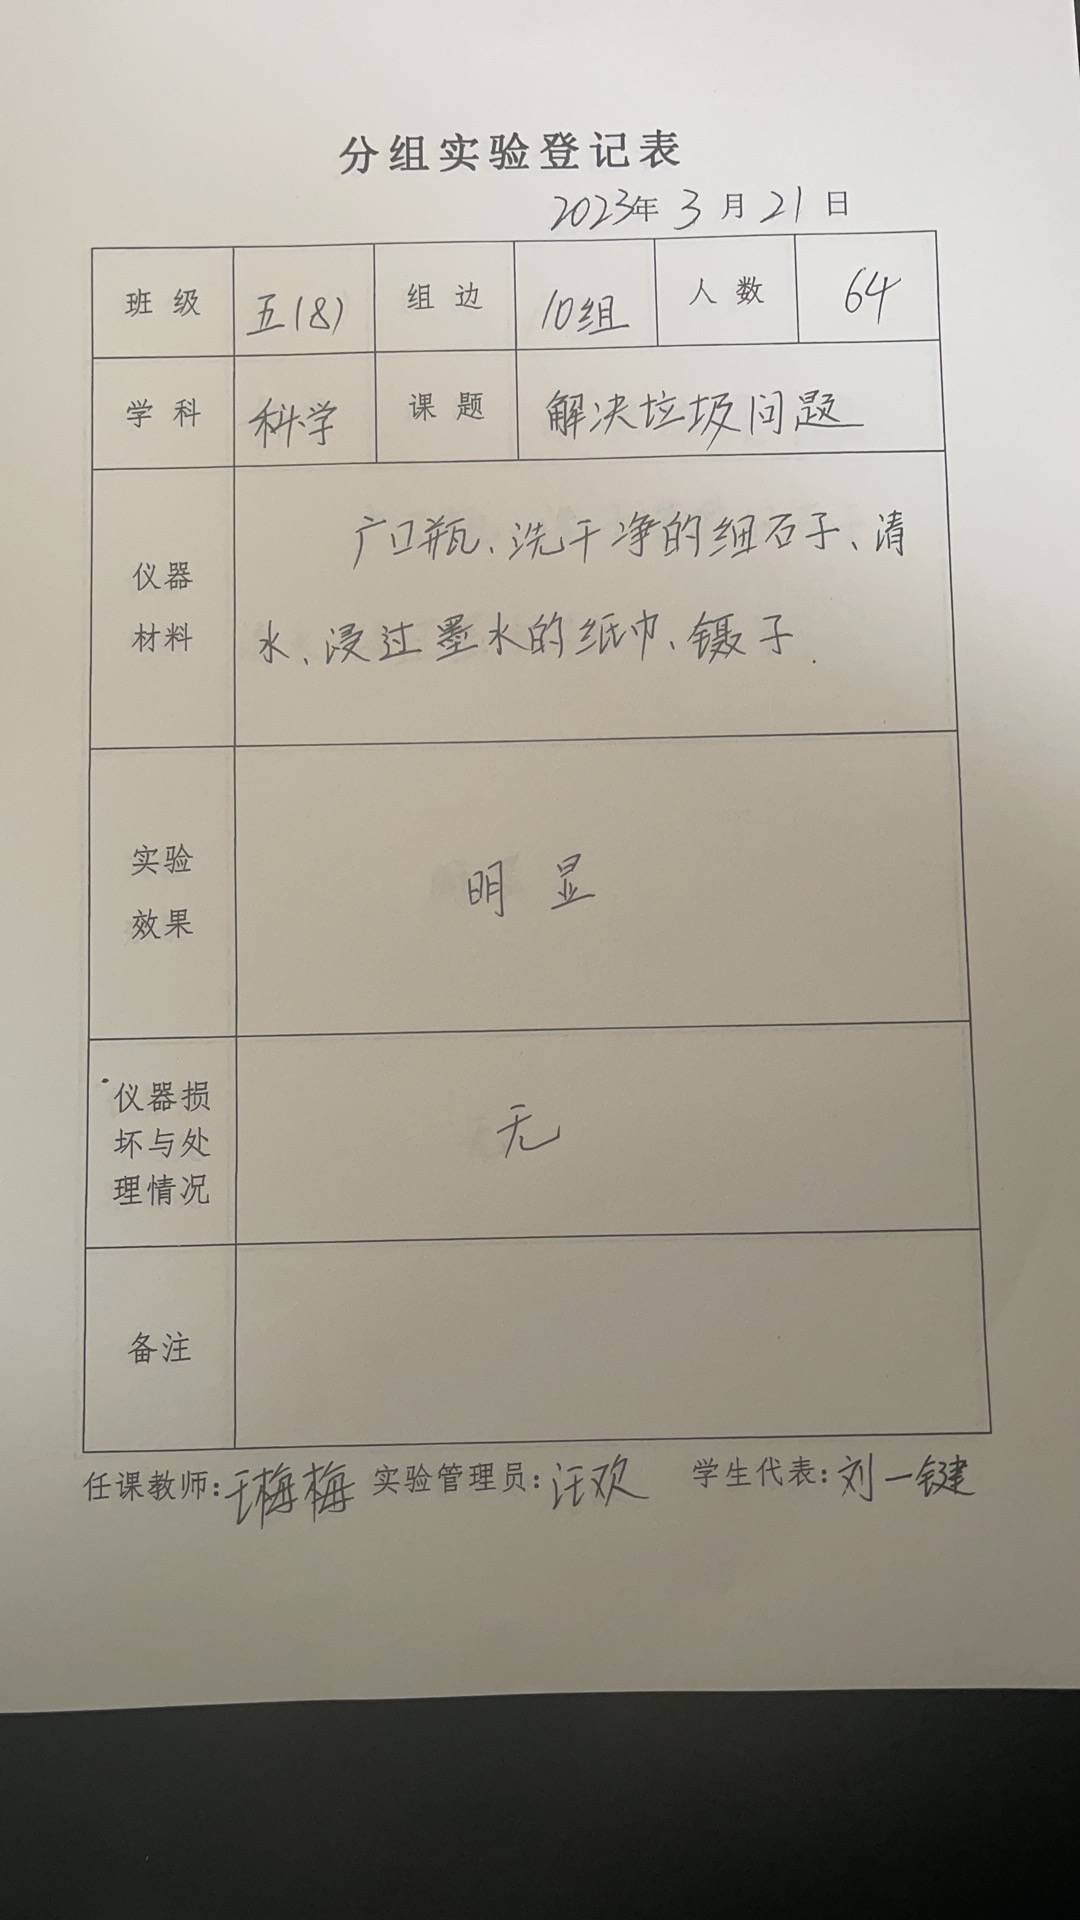 分组实验登记表
2023年 3 月 21 日
班 级 五(8) 组 边 10组 人 数 64
学 科 科学 课 题 解决垃圾问题
仪器
材料
广口瓶、洗干净的细石子、清
水、浸过墨水的纸巾、镊子.
实验
效果
明 显
仪器损
坏与处
理情况
无
备注
任课教师:王梅梅 实验管理员:汪欢 学生代表:刘一键